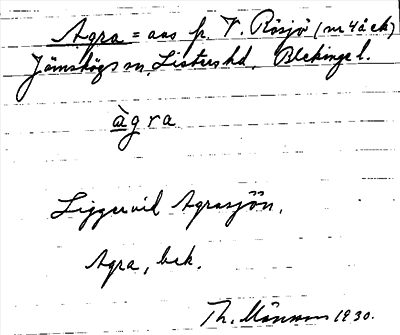 Agra = avs fr. V. Rösjö (nr 4 å ek)
Jämshögs sn, Listers hd. Blekinge l.
àgra
Ligger vid Agrasjön.
Agra, bek.
Th. Månsson 1930.